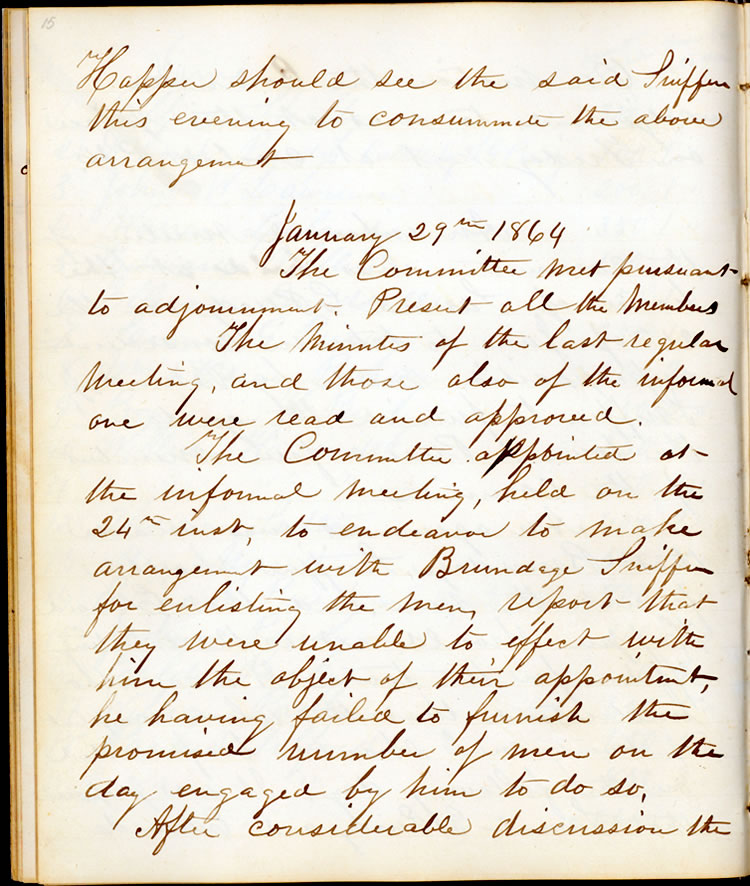 15
Happer should see the said Sniffen
this evening to consummate the above
arrangement
January 29th 1864
The Committee met pursuant
to adjournment. Present all the Members
The Minutes of the last regular
Meeting, and those also of the informal
one were read and approved.
The Committee appointed at
the informal Meeting, held on the
24th inst, to endeavor to make
arrangement with Brundage Sniffen
for enlisting the men, report that
they were unable to effect with
him the object of their appointment,
he having failed to furnish the
promised number of men on the
day engaged by him to do so,
After considerable discussion the